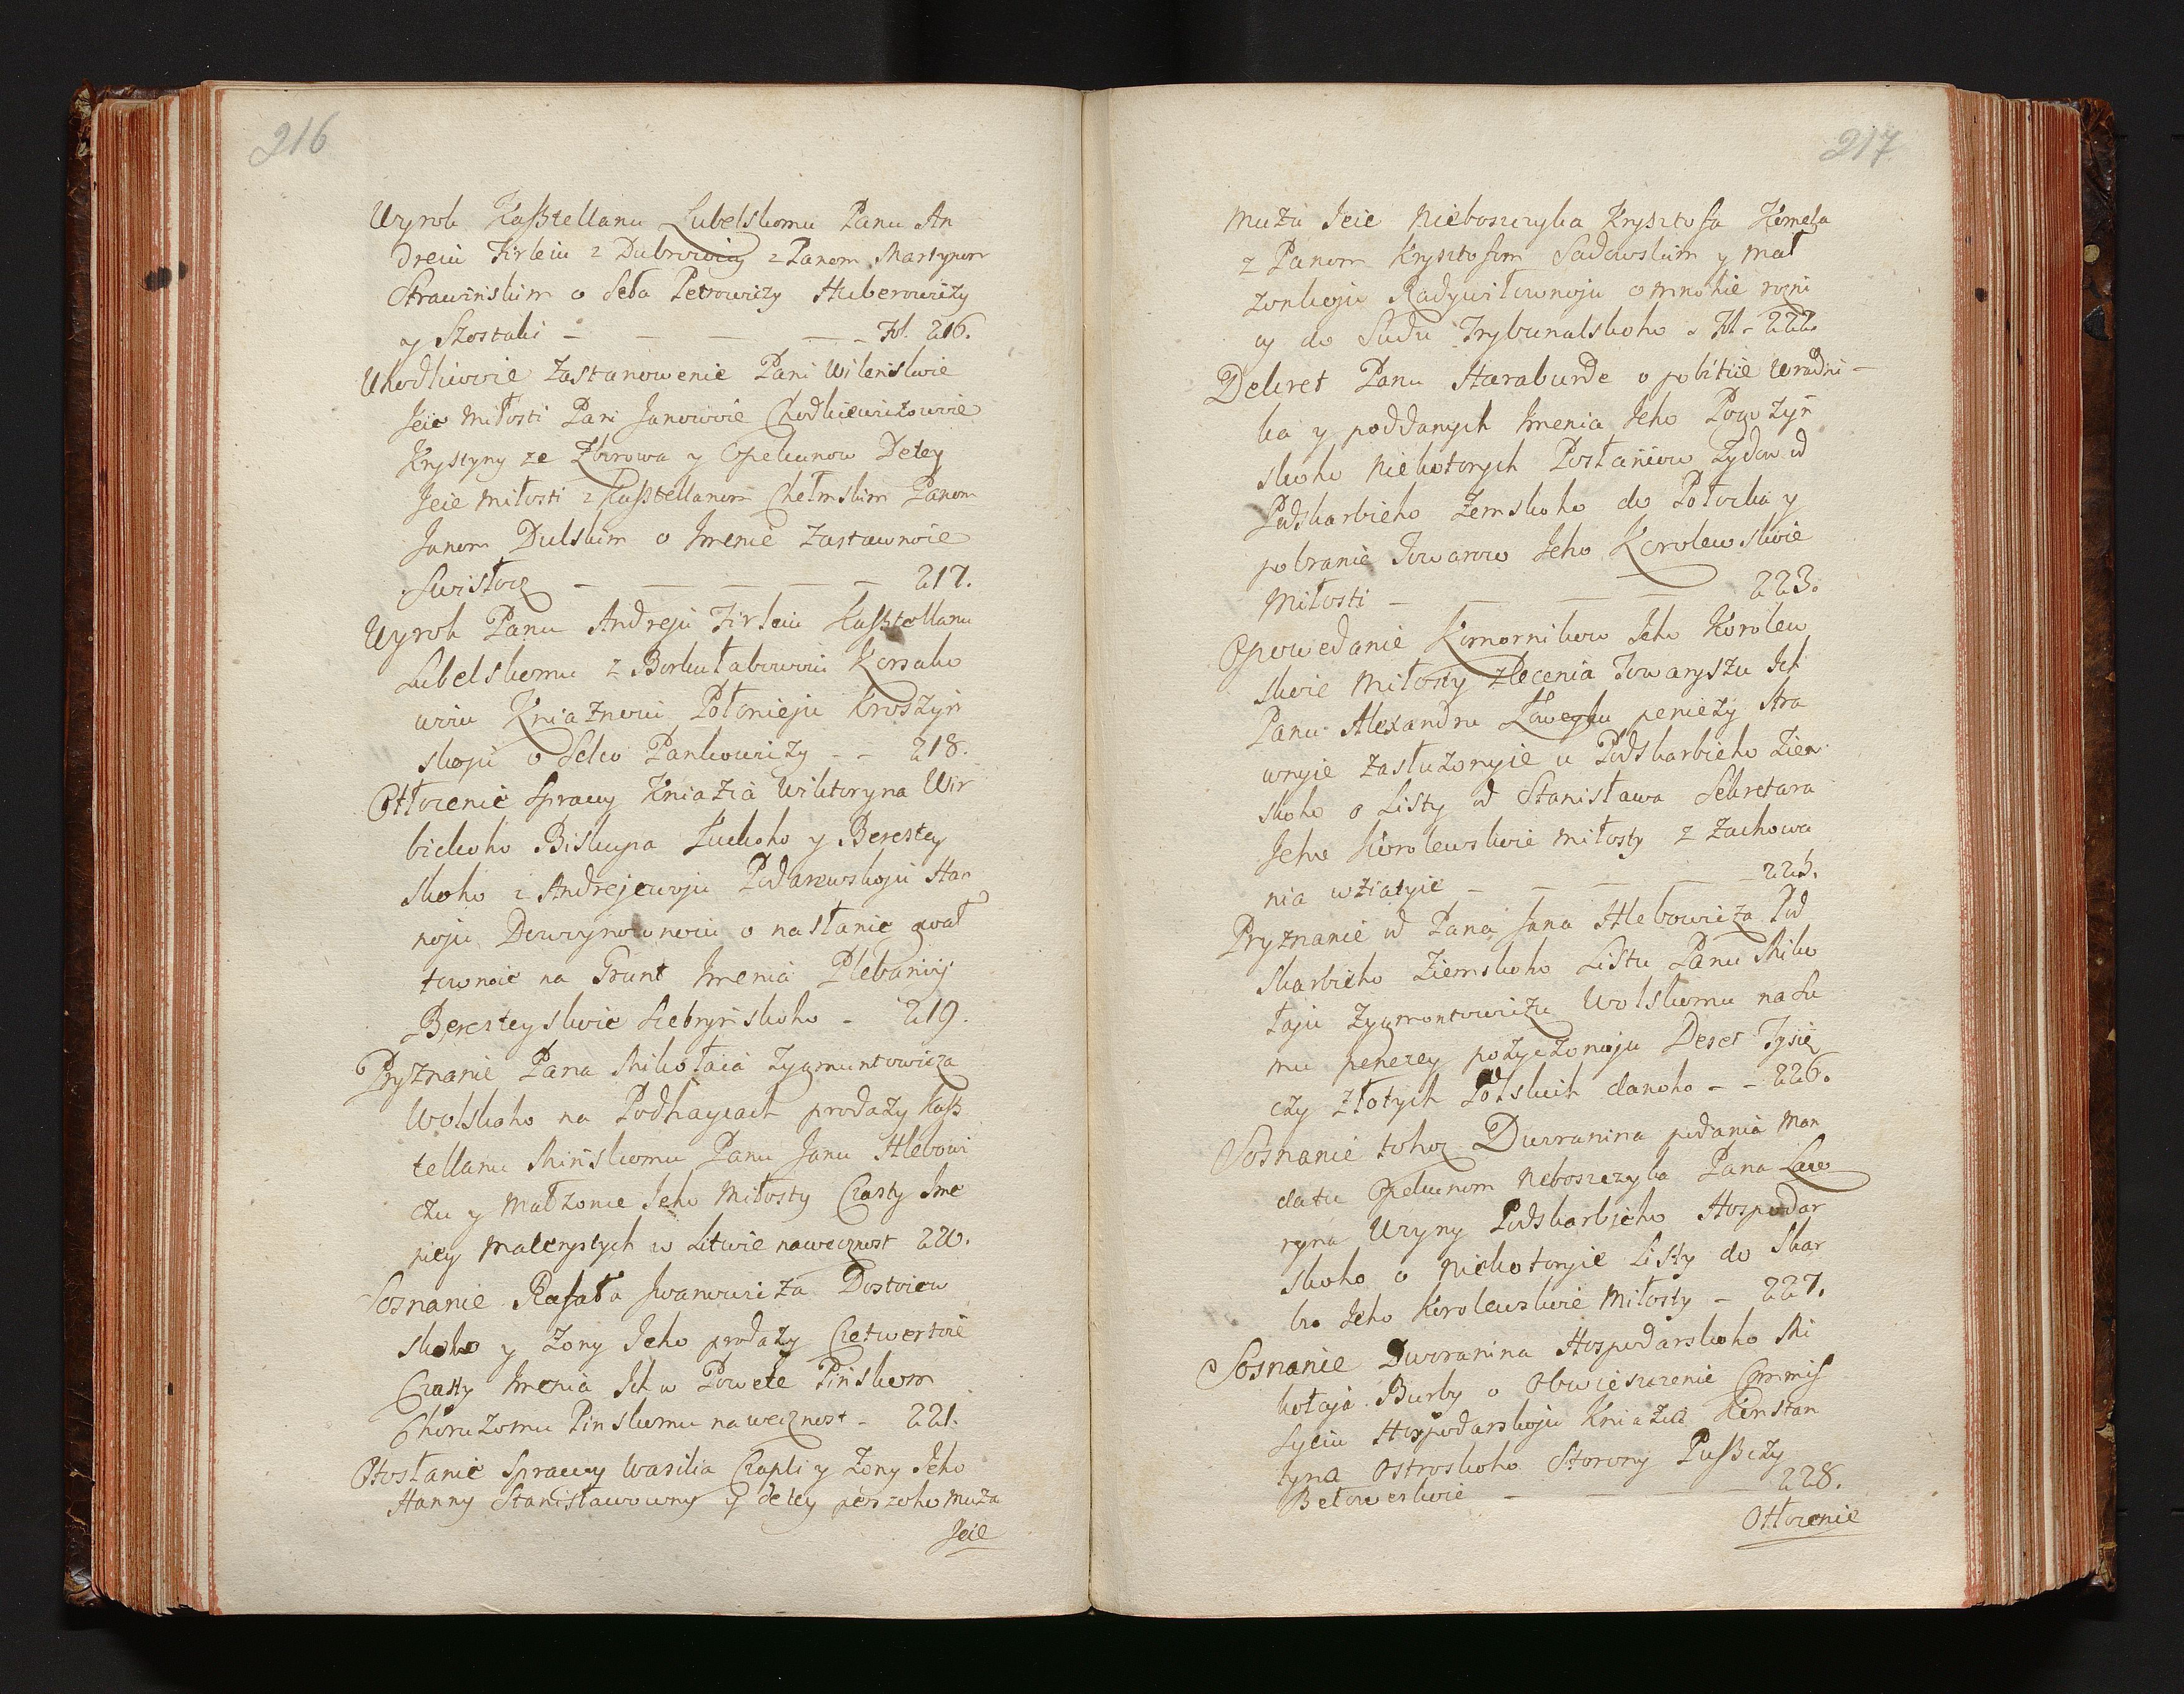 216
Wyrok Kaßtellanu Lubelskomu Panu An
dreiu Firleiu z Dubrowicy z Panom Martynom
Strawinskim o Seła Petrowiczy Huberowiczy
y Szostaki — — — — Fol. 216.
Uhodliwoie Zastanowenie Pani Wilenskoie
Jeie Miłosti Pani Janowoie Chodkiewiczowoie
Krystyny ze Zborowa y Opekunow Detey
Jeie Miłosti z Kaßtellanom Chełmskim Panom
Janom Dulskim o Jmenie Zastawnoie
Swisłocz — — — — — 217.
Wyrok Panu Andreju Firleiu Kaßtellanu
Lubelskomu z Borkułabowoiu Korsako
woiu Kniaznoiu Połonieju Kroszyn
skoju o Selco Pankowiczy - - 218.
Otłozenie Sprawy Kniazia Wiktoryna Wir
bickoho Biskupa Łuckoho y Berestey
skoho z Andrejewoju Podarewskoju Han
noju Dowoynownoiu o nasłanie gwał
townoie na Grunt Jmenia Plebaniy
Beresteyskoie Žebrynskoho - 219.
Pryznanie Pana Mikołaia Zygmuntowicza
Wolskoho na Podhaycach prodazy Kaß
tellanu Minskomu Panu Janu Hlebowi
czu y Małzonie Jeho Miłosty Czasty Jme
niey Materystych w Litwie nawecznost 220.
Soznanie Rafała Jwanowicza Dostoiew
skoho y Zony Jeho prodazy Czetwertoie
Czasty Jmenia Jch w Powete Pinskom
Choruzomu Pinskomu nawecznost - 221.
Otosłanie Sprawy Wasilia Czapli y Zony Jeho
Hanny Stanisławowny y detey perszoho Muza
Jeie
217
Muza Jeie Nieboszczyka Krysztofa Kimela
z Panom Krysztofom Sadowskim y Mał
zonkoju Radywiłownoju o mnohie rozni
cy do Sudu Trybunalskoho . Fol - 222.
Dekret Panu Haraburde o pobitie Wradni-
ka y poddanych Jmenia Jeho
skoho Niekotorych Posłańcow Zydow od
Podskarbieho Zemskoho do Połocka y
pobranie Towarow Jeho Korolewskoie
Miłosti — — — — 223.
Opowedanie Komornikow Jeho Korolew
skoie Miłosty zlecenia Towaryszu Jch
Panu Alexandru penezy Stra
wnyie Zasłuzonyie u Podskarbieho Ziem
skoho o Listy od Stanisława Sekretara
Jeho Korolewskoie Miłosty z Zachowa
nia wziatyie — — — — 225.
Pryznanie od Pana Jana Hlebowicza Pod
skarbieho Ziemskoho Listu Panu Miko
łaju Zygmontowiczu Wolskomu na Su
mu penezey pozyczonoju Deset Tysie
czy Złotych Polskich danoho - - 226.
Soznanie tohoz Dworanina podania Man
datu Opekunom Neboszczyka Pana Ław
ryna Woyny Podskarbieho Hospodar
skoho o Niekotoryie Listy do Skar
bu Jeho Korolewskoie Miłosty - 227.
Soznanie Dworanina Hospodarskoho Mi
kołaja Burby o Obwieszczenie Commis
syeiu Hospodarskoju Kniazia Konstan
tyna Ostroskoho Storony Pußczy
Bełowezkoie — — — — 228.
Otłozenie